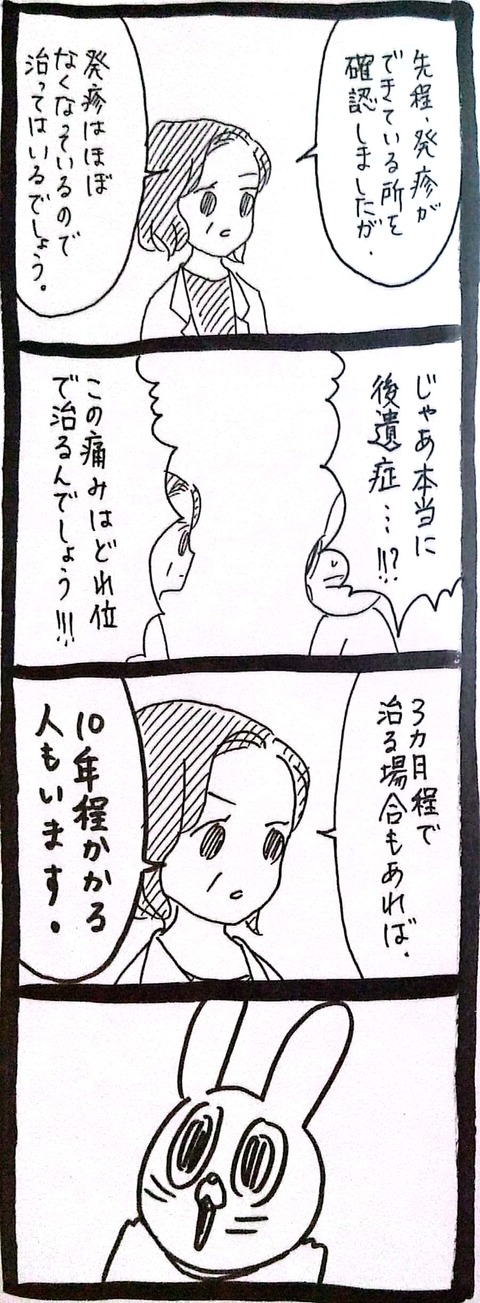 先程、発疹が
できている所を
確認しましたが、
発疹はほぼ
なくなっているので
治ってはいるでしょう。
じゃあ本当に
後遺症…!!?
この痛みはどれ位
で治るんでしょう!!!
3カ月程で
治る場合もあれば、
10年程かかる
人もいます。